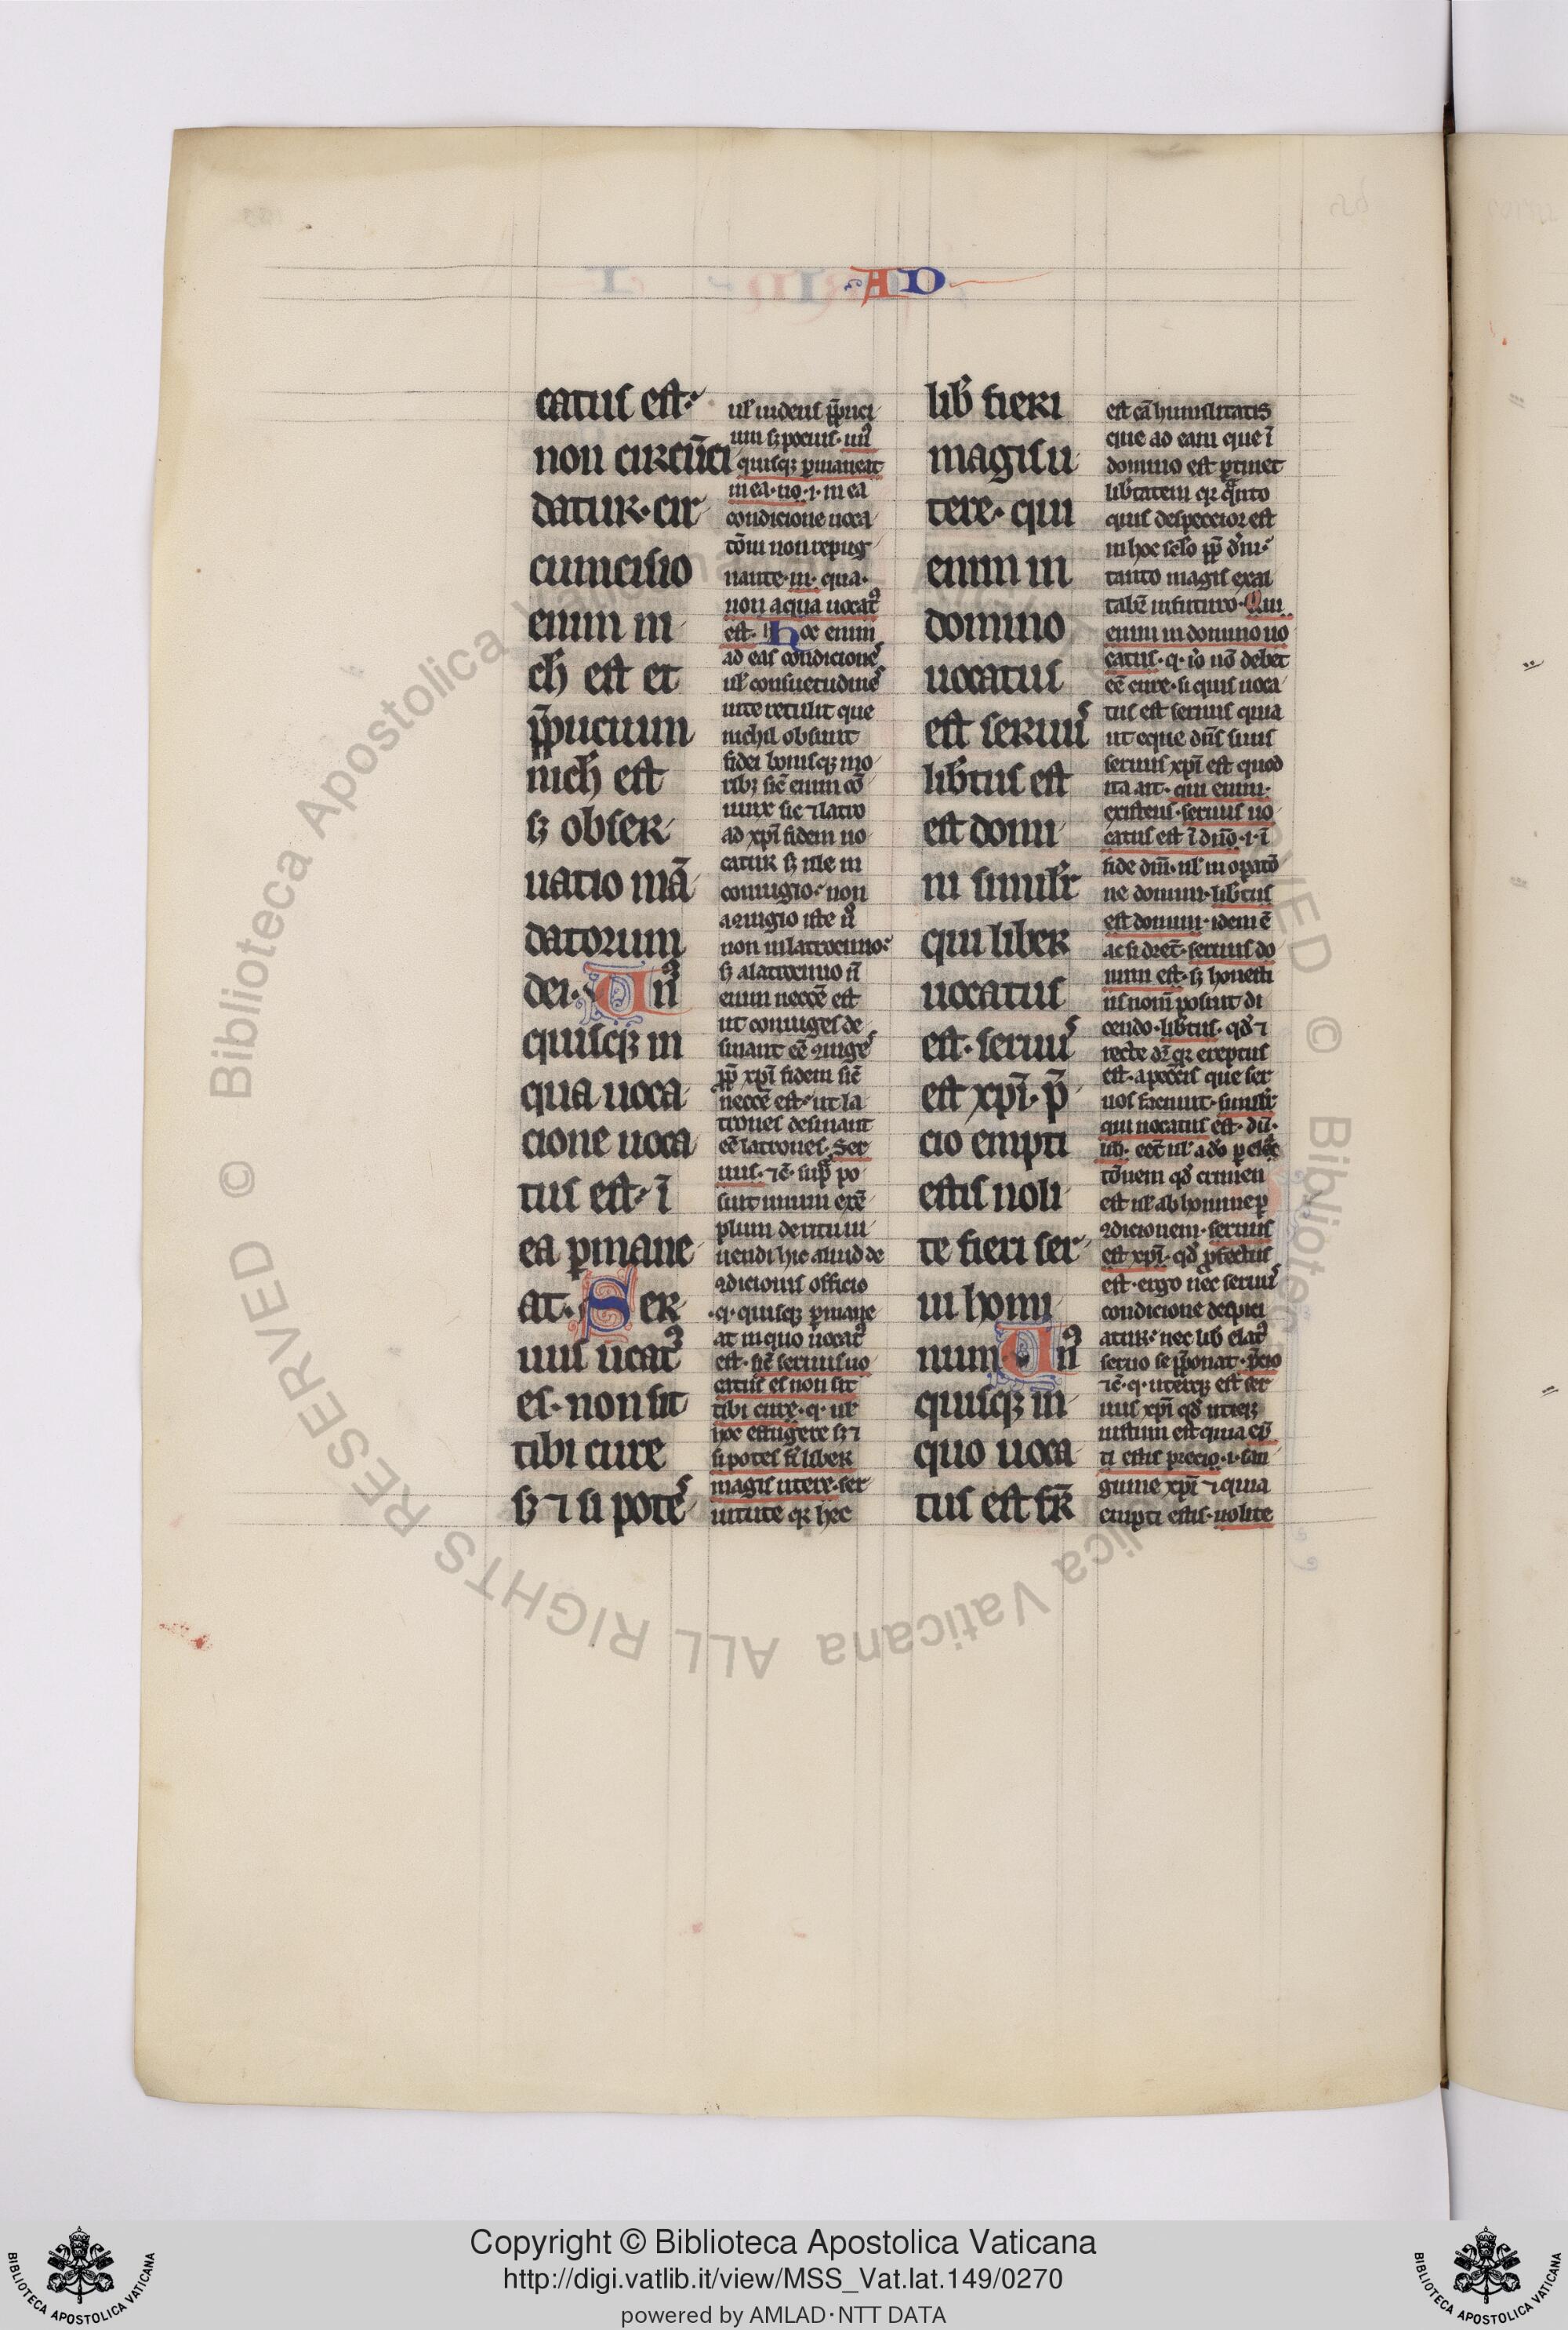 AD
catus est·
non circūci
datur· cir
cumcisio
enim ni
ch̄ est et
p̄puciuм
nich̄ est
sꝫ obser
uatio mā
datorum
dei· Vn̄⁹
quisqꝫ in
qua uoca
cione uoca
tus est· ī
ea ꝑmane
at· Ser
uus uocat⁹
es· non sit
tibi cure
sꝫ ⁊ si potes
ul' iudeus p̄puci
um sꝫ pocius· un⁹
quisqꝫ ꝑmaneat
in ea· uo· i· in ea
condicione uoca
tōni non repug
nante· in· qua·
non a qua uocat⁹
est· Hoc enim
ad eas condiciones
ul' consuetudines
uite retulit que
nichil obsunt
fidei bonisqꝫ mo
ribꝫ sic̄ enim cō
iunx sic ⁊ latro
ad xp̄i fidem uo
catur sꝫ ille in
coniugio· non
a ꝯiugio iste ū
non in latrocinio·
sꝫ a latrocinio n̄
enim necc̄e est
ut coniuges de
sinant ēe ꝯiuges
pp̄ xp̄i fidem sic̄
necc̄e est· ut la
trones desinant
ēe latrones· Ser
uus· ⁊c̄· sup̄ po
suit unum exē
plum de ritu ui
uendi hic aliud de
ꝯdicionis officio
·q· quisqꝫ ꝑmane
at in quo uocat⁹
est· sic̄ seruus uo
catus es non sit
tibi cure· q· ul'
hoc effugere sꝫ ⁊
si potes fi' liber
magis utere· ser
uitute qr hec
lib̄ fieri
magis u
tere· qui
enim in
domino
uocatus
est seruus
lib̄tus est
est domi
ni simil'r
qui liber
uocatus
est· seruus
est xp̄i· p̄
cio empti
estis noli
te fieri ser
ui homi
num Vn̄⁹
quisqꝫ in
quo uoca
tus est fr̄
est cā humilitatis
que ad eam que ī
domino est ꝑtinet
lib̄tatem qr q̄nto
quis despeccior est
in hoc sc̄lo pp̄ dm̄·
tanto magis exal
tab̄r in futuro· Qui
enim in domino uo
catus· q· iō nō debet
ēe cure· si quis uoca
tus est seruus quia
ut eque dn̄s suus
seruus xp̄i est quod
ita ait· qui enim·
existens· seruus uo
catus est ī dn̄o· i· ī
fide dn̄i· ul' in oꝑatō
ne domini· lib̄tus
est domini· idem ē
ac si dic̄et· seruus do
mini est· sꝫ honesti
us nom̄ posuit di
cendo· lib̄tus· qd̄ ⁊
recte dr̄ qr ereptus
est· a pecc̄is que ser
uos faciunt· simil'r
qui uocatus est· cū·
lib̄·
tōnem qd̄
est ul' ab homine ꝑ
ꝯdicionem· seruus
est xp̄i· qd̄ ꝓfectus
est· ergo nec seruus
condicione despici
atur· nec lib̄ elat⁹
seruo se p̄ponat· p̄cio
⁊c̄· q· uterqꝫ est ser
uus xp̄i qd̄ utiqꝫ
iustum est quia ep̄
ti estis precio· i· san
guine xp̄i ⁊ quia
empti estis· nolite
Copyright © Biblioteca Apostolica Vaticana
http://digi.vatlib.it/view/MSS_Vat.lat.149/0270
powered by AMLAD·NTT DATA
BIBLIOTECA APOSTOLICA VATICANA
BIBLIOTECA APOSTOLICA VATICANA
© Biblioteca Apostolica Vaticana ALL RIGHTS RESERVED